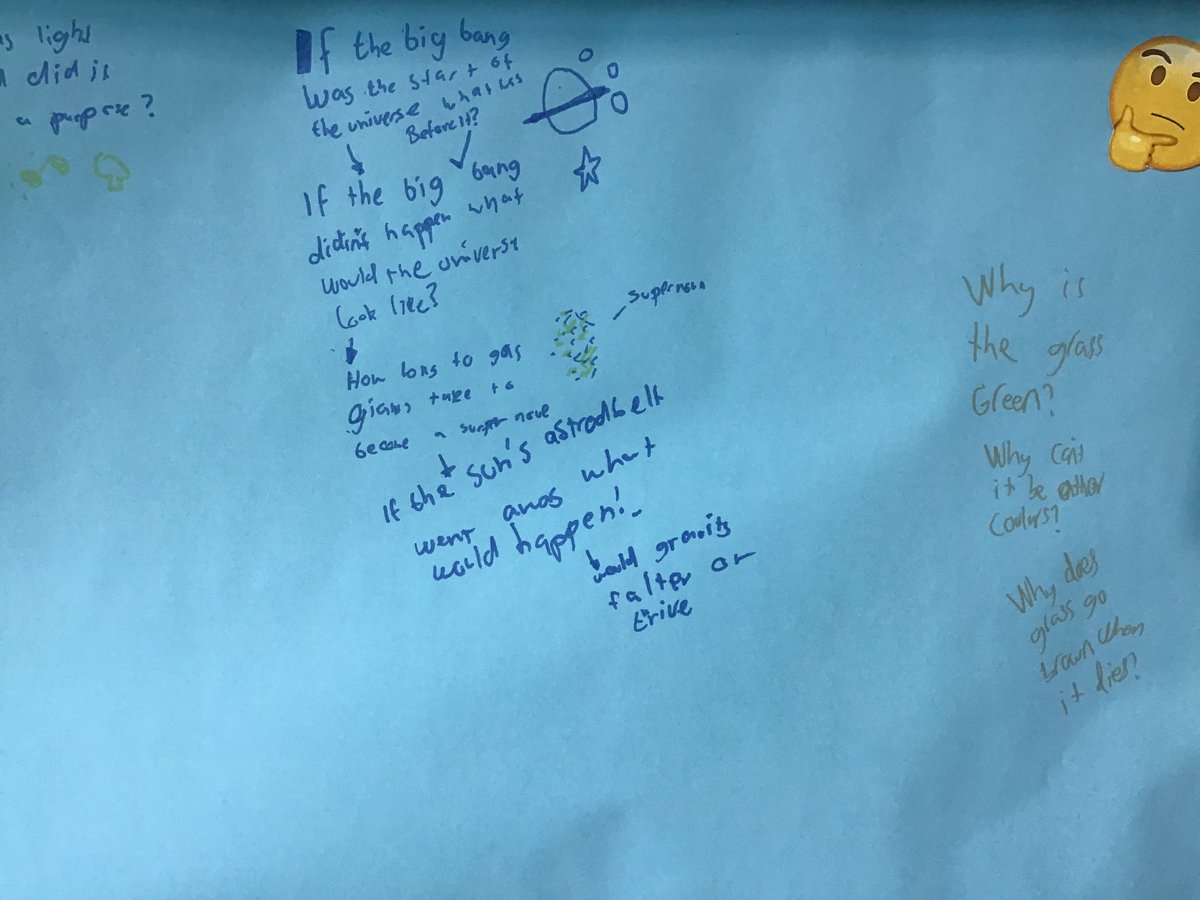 light
did is
a purpose?
If the big bang
was the start of
the universe what was
Before it?
If the big bang
didn't happen what
would the universe
look like?
How long to gas
giants take to
become a super nove
supernova
If the sun's astrodbelt
went what
would happen!
would gravity
falter or
trive
Why is
the grass
Green?
Why can't
it be other
Coulors?
Why does
grass go
brown when
it dies?